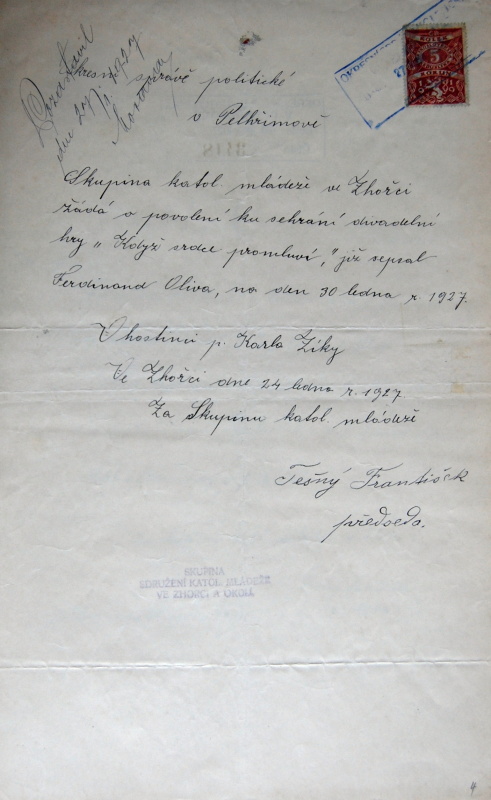 Okresní správě politické
v Pelhřimově
KOLEK
5
KORUN
Skupina katol. mládeže ve Zhořci
žádá o povolení ku sehrání divadelní
hry „Když srdce promluví," již sepsal
Ferdinand Oliva, na den 30 ledna r. 1927.
V hostinci p. Karla Zíky
Ve Zhořci dne 24 ledna r. 1927
Za Skupinu katol. mládeže
Tešný František
předseda.
SKUPINA
SDRUŽENÍ KATOL. MLÁDEŽE
VE ZHOŘCI A OKOLÍ
4